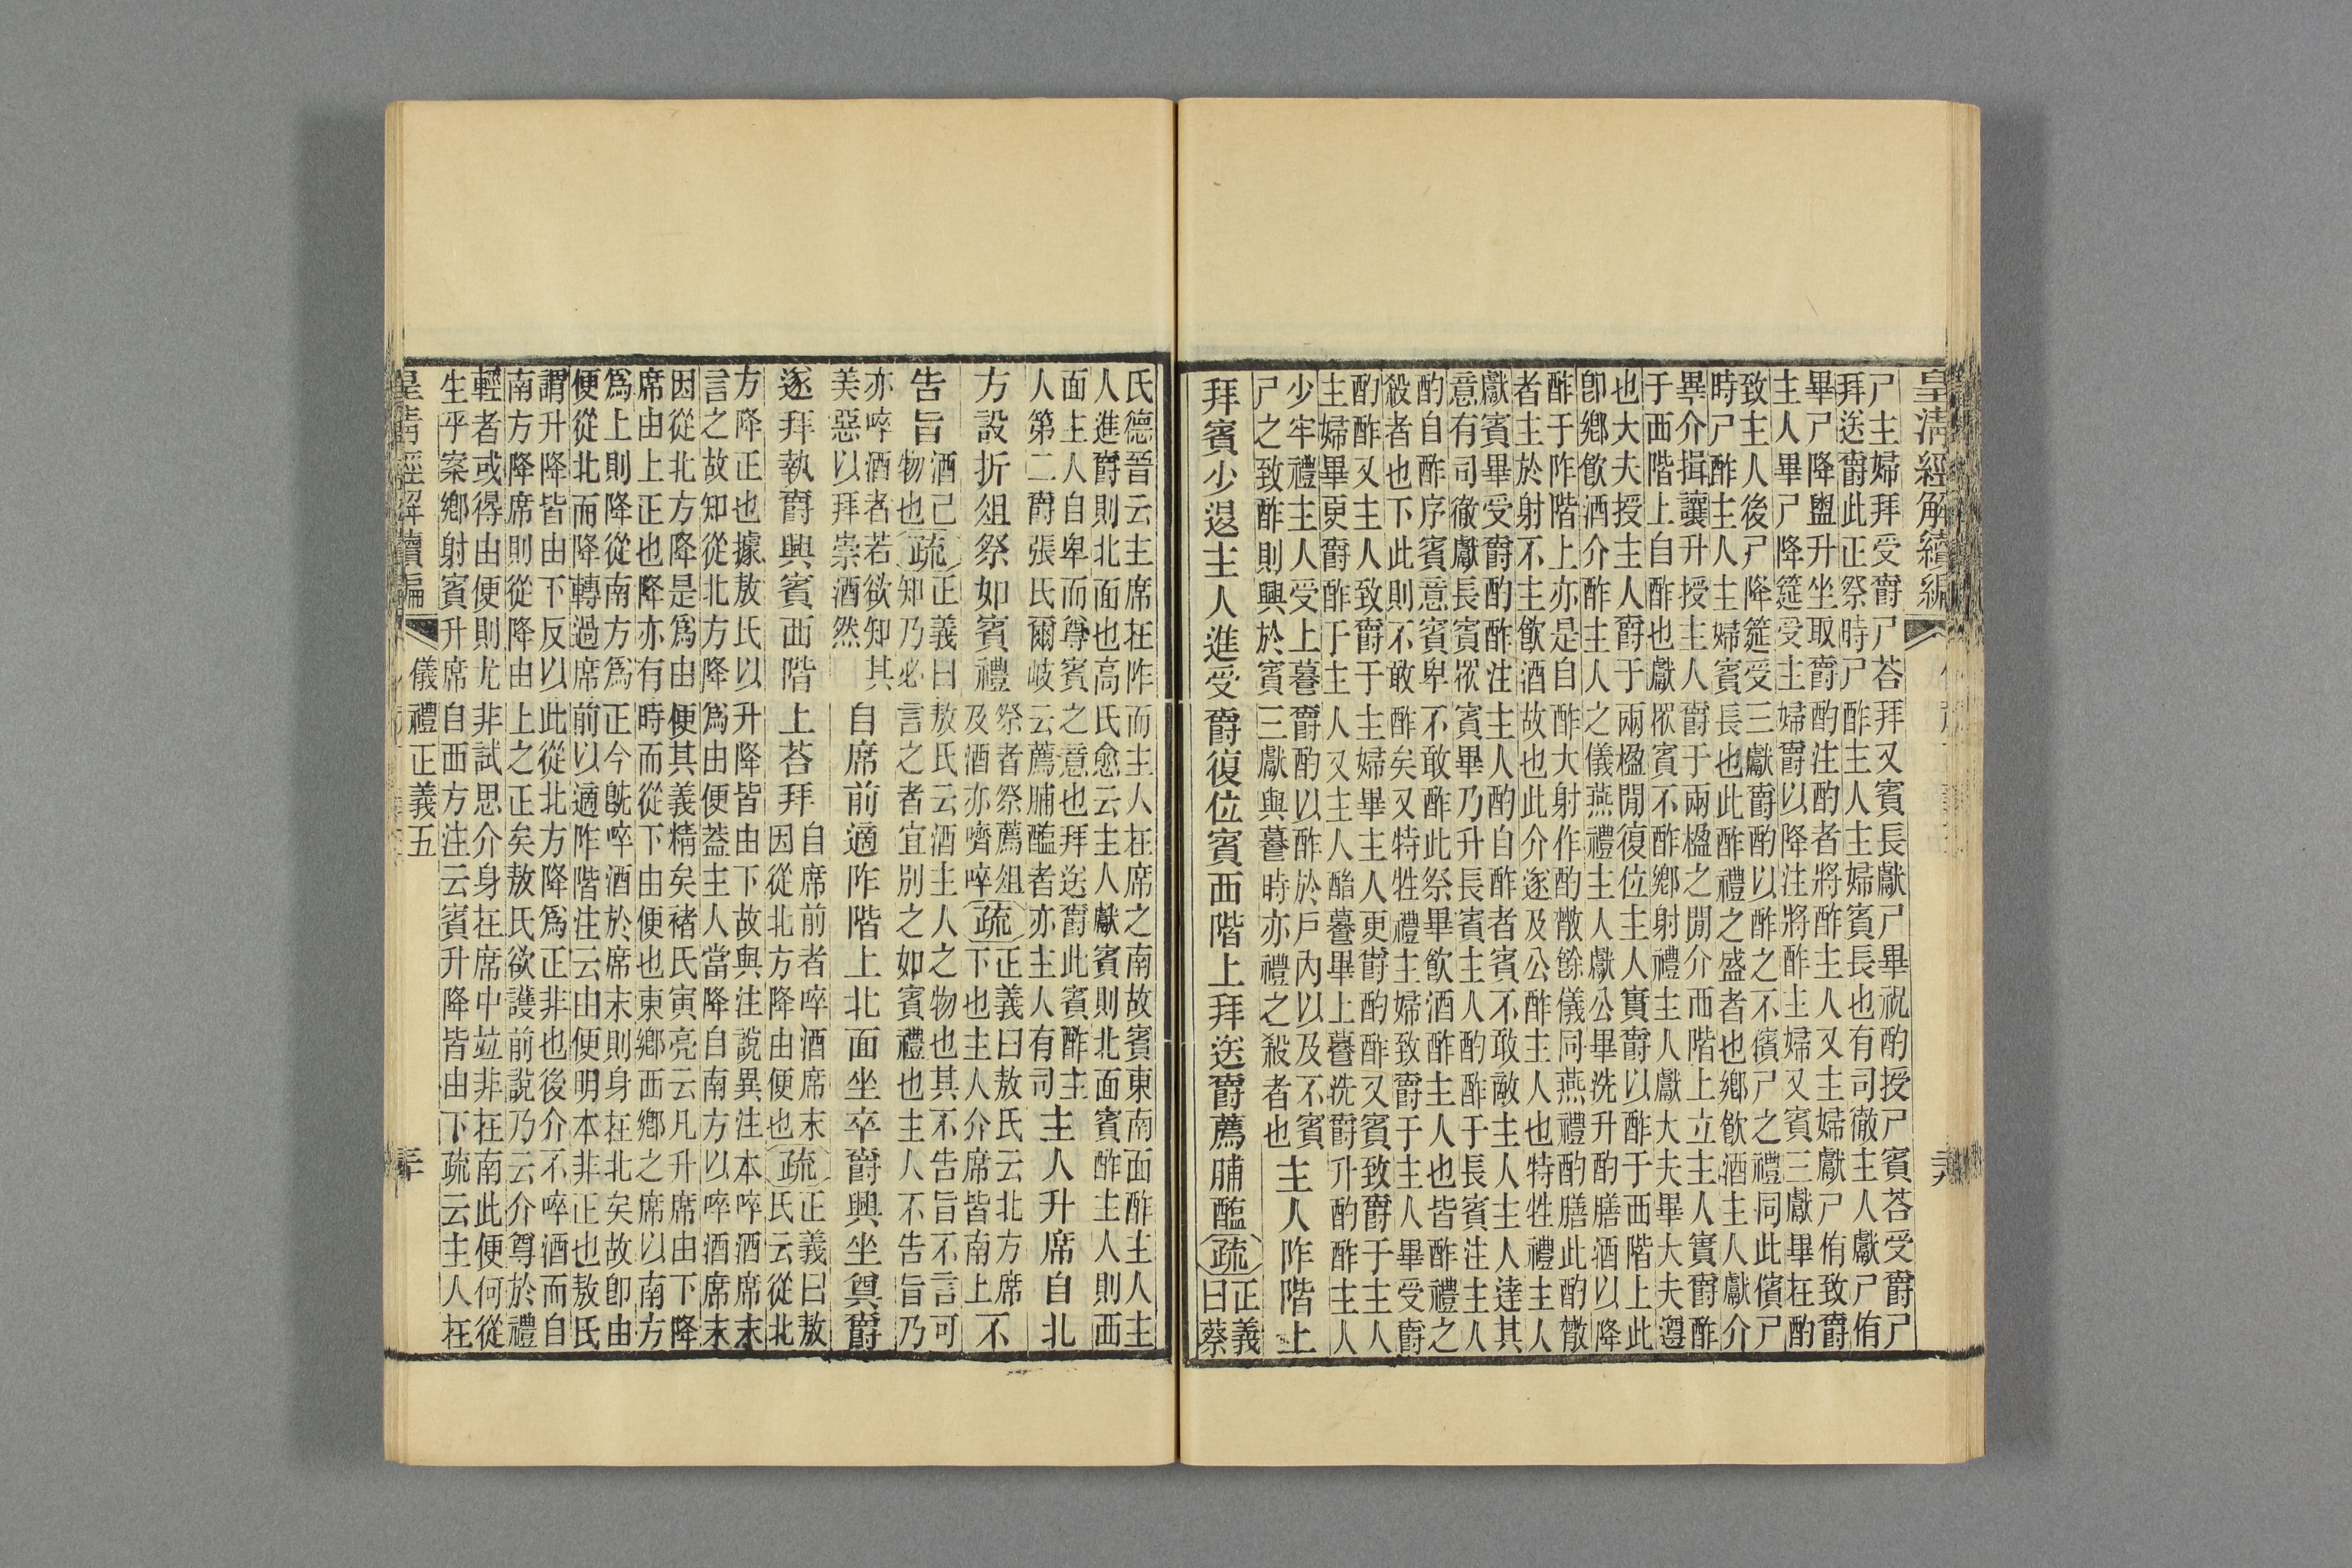 皇清經解續編
尸主婦拜受爵尸荅拜又賓長獻尸畢祝酌授尸賓荅受爵尸
拜送爵此正祭時尸酢主人主婦賓長也有司徹主人獻尸侑
畢尸降盥升坐取爵酌注酌者將酢主人又主婦獻尸侑致爵
主人畢尸降筵受主婦爵以降注將酢主婦又賓三獻畢在酌
致主人後尸降筵受三獻爵酌以酢之不儐尸之禮同此儐尸
時尸酢主人主婦賓長也此酢禮之盛者也鄉飮酒主人獻介
畢介揖讓升授主人爵于兩楹之閒介西階上立主人實爵酢
于西階上自酢也獻眾賓不酢鄉射禮主人獻大夫畢大夫遵
也大夫授主人爵于兩楹閒復位主人實爵以酢于西階上此
卽鄉飮酒介酢主人之儀燕禮主人獻公畢洗升酌膳酒以降
酢于阼階上亦是自酢大射作酌散餘儀同燕禮酌膳此酌散
者主於射不主飮酒故也此介遂及公酢主人也特牲禮主人
獻賓畢受爵酌酢注主人酌自酢者賓不敢敵主人主人達其
意有司徹獻長賓眾賓畢乃升長賓主人酌酢于長賓注主人
酌自酢序賓意賓卑不敢酢此祭畢飮酒酢主人也皆酢禮之
殺者也下此則不敢酢矣又特牲禮主婦致爵于主人畢受爵
酌酢又主人致爵于主婦畢主人更爵酌酢又賓致爵于主人
主婦畢更爵酢于主人又主人酳䉵畢上䉵洗爵升酌酢主人
少牢禮主人受上䉵爵酌以酢於戶內以及不賓
尸之致酢則興於賓三獻與䉵時亦禮之殺者也
主人阼階上
拜賓少退主人進受爵復位賓西階上拜送爵薦脯醢疏
正義
曰蔡
氏德晉云主席在阼而主人在席之南故賓東南面酢主人主
人進爵則北面也高氏愈云主人獻賓則北面賓酢主人則西
面主人自卑而尊賓之意也拜送爵此賓酢主
人第二爵張氏爾岐云薦脯醢者亦主人有司
主人升席自北
方設折俎祭如賓禮
祭者祭薦俎
及酒亦嚌啐
疏
正義曰敖氏云北方席
下也主人介席皆南上
不
告旨
酒己
物也
疏
正義曰敖氏云酒主人之物也其不告旨不言可
知乃必言之者宜別之如賓禮也主人不告旨乃
亦啐酒者若欲知其
美惡以拜崇酒然
自席前適阼階上北面坐卒爵興坐奠爵
遂拜執爵興賓西階上荅拜
自席前者啐酒席末
因從北方降由便也
疏
正義曰敖
氏云從北
方降正也據敖氏以升降皆由下故與注說異注本啐酒席末
言之故知從北方降爲由便葢主人當降自南方以啐酒席末
因從北方降是爲由便其義精矣褚氏寅亮云凡升席由下降
席由上正也降亦有時而從下由便也東鄉西鄉之席以南方
爲上則降從南方爲正今旣啐酒於席末則身在北矣故卽由
便從北而降轉過席前以適阼階注云由便明本非正也敖氏
謂升降皆由下反以此從北方降爲正非也後介不啐酒而自
南方降席則從降由上之正矣敖氏欲護前說乃云介尊於禮
輕者或得由便則尤非試思介身在席中竝非在南此便何從
生乎案鄉射賓升席自西方注云賓升降皆由下疏云主人在
皇清經解續編
儀禮正義五
三十